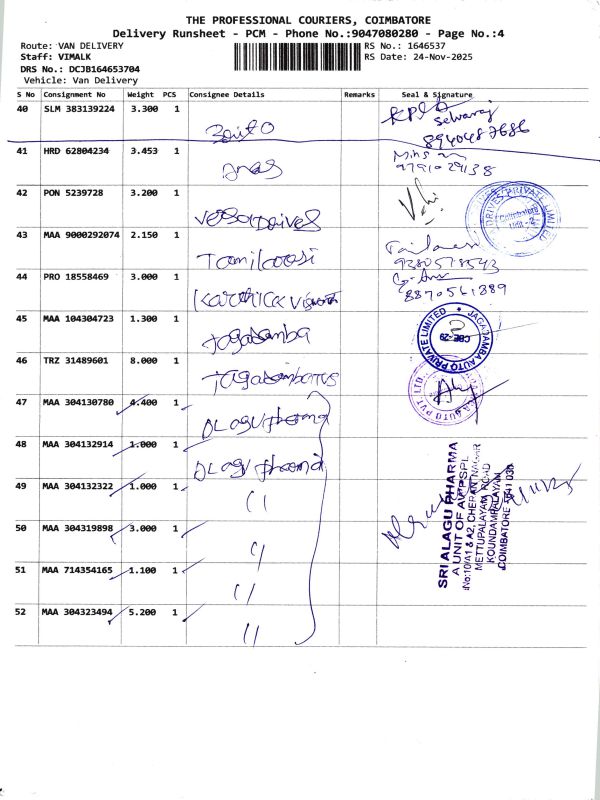 THE PROFESSIONAL COURIERS, COIMBATORE
Delivery Runsheet - PCM - Phone No.:9047080280 - Page No.:4
Route: VAN DELIVERY
Staff: VIMALK
DRS No.: DCJB164653704
Vehicle: Van Delivery
RS No.: 1646537
RS Date: 24-Nov-2025
S No Consignment No Weight PCS Consignee Details Remarks Seal & Signature
40 SLM 383139224 3.300 1
Selvaraj
8940487686
41 HRD 62804234 3.453 1
9791029138
42 PON 5239728 3.200 1
DRIVES PRIVATE LIMITED
Coimbatore
43 MAA 9000292074 2.150 1 Tamilarasi
9280578543
44 PRO 18558469 3.000 1 Karthick
8870561389
45 MAA 104304723 1.300 1 Jagadamba
JAGADAMBA AUTO PRIVATE LIMITED
CBE-29
46 TRZ 31489601 8.000 1
AUTO PVT. LTD.
47 MAA 304130780 4.400 1 Alagu pharma
48 MAA 304132914 1.000 1 Alagu pharma
49 MAA 304132322 1.000 1 "
50 MAA 304319898 3.000 1 "
51 MAA 714354165 1.100 1 "
52 MAA 304323494 5.200 1 "
SRI ALAGU PHARMA
A UNIT OF AVPSPL
No:10/A1 & A2, CHERAN NAGAR
METTUPALAYAM ROAD
KOUNDAMPALAYAM
COIMBATORE - 641 030